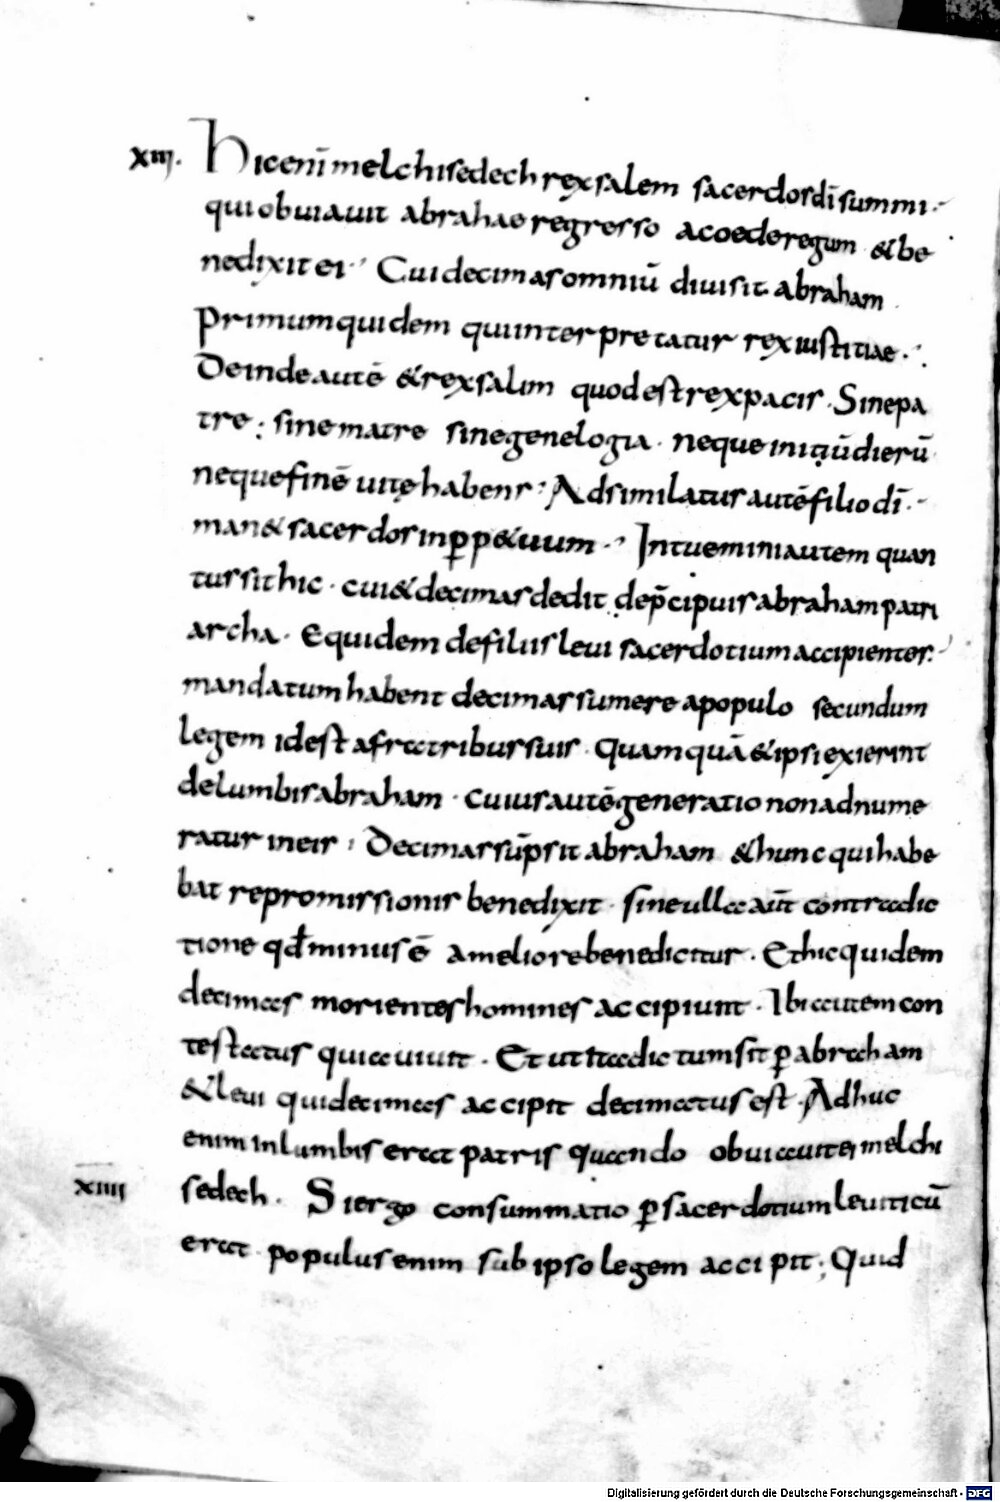 xiii. Hic enī melchisedech rex salem sacerdos dī summi.
qui obuiauit abrahae regresso a cede regum & be
nedixit ei. Cui decimas omniū diuisit abraham
primum quidem qui interpretatur rex iustitiae.
Deinde autē & rex salim quod est rex pacis. Sine pa
tre; sine matre sine genelogia. neque initiū dierū
neque finē uitę habens. Adsimilatus autē filio dī.
man& sacerdos in ꝑp&uum. Intuemini autem quan
tus sit hic. cui & decimas dedit de p̄cipuis abraham patri
archa. Equidem de filiis leui sacerdotium accipientes.
mandatum habent decimas sumere a populo secundum
legem id est a fratribus suis. Quamquā & ipsi exierint
de lumbis abraham. cuius autē generatio non adnume
ratur in eis. Decimas sūpsit abraham & hunc qui habe
bat repromissionis benedixit. sine ulla aūt contradic
tione qđ minus ē a meliore benedicitur. Et hic quidem
decimas morientes homines accipiunt. Ibi autem con
testatus quia uiuit. Et ut ita dictum sit ꝑ abraham
& leui qui decimas accipit decimatus est. Adhuc
enim in lumbis erat patris quando obuiauit ei melchi
sedech.
xiiii Si ergo consummatio ꝑ sacerdotium leuiticū
erat. populus enim sub ipso legem accipit; Quid
Digitalisierung gefördert durch die Deutsche Forschungsgemeinschaft - DFG